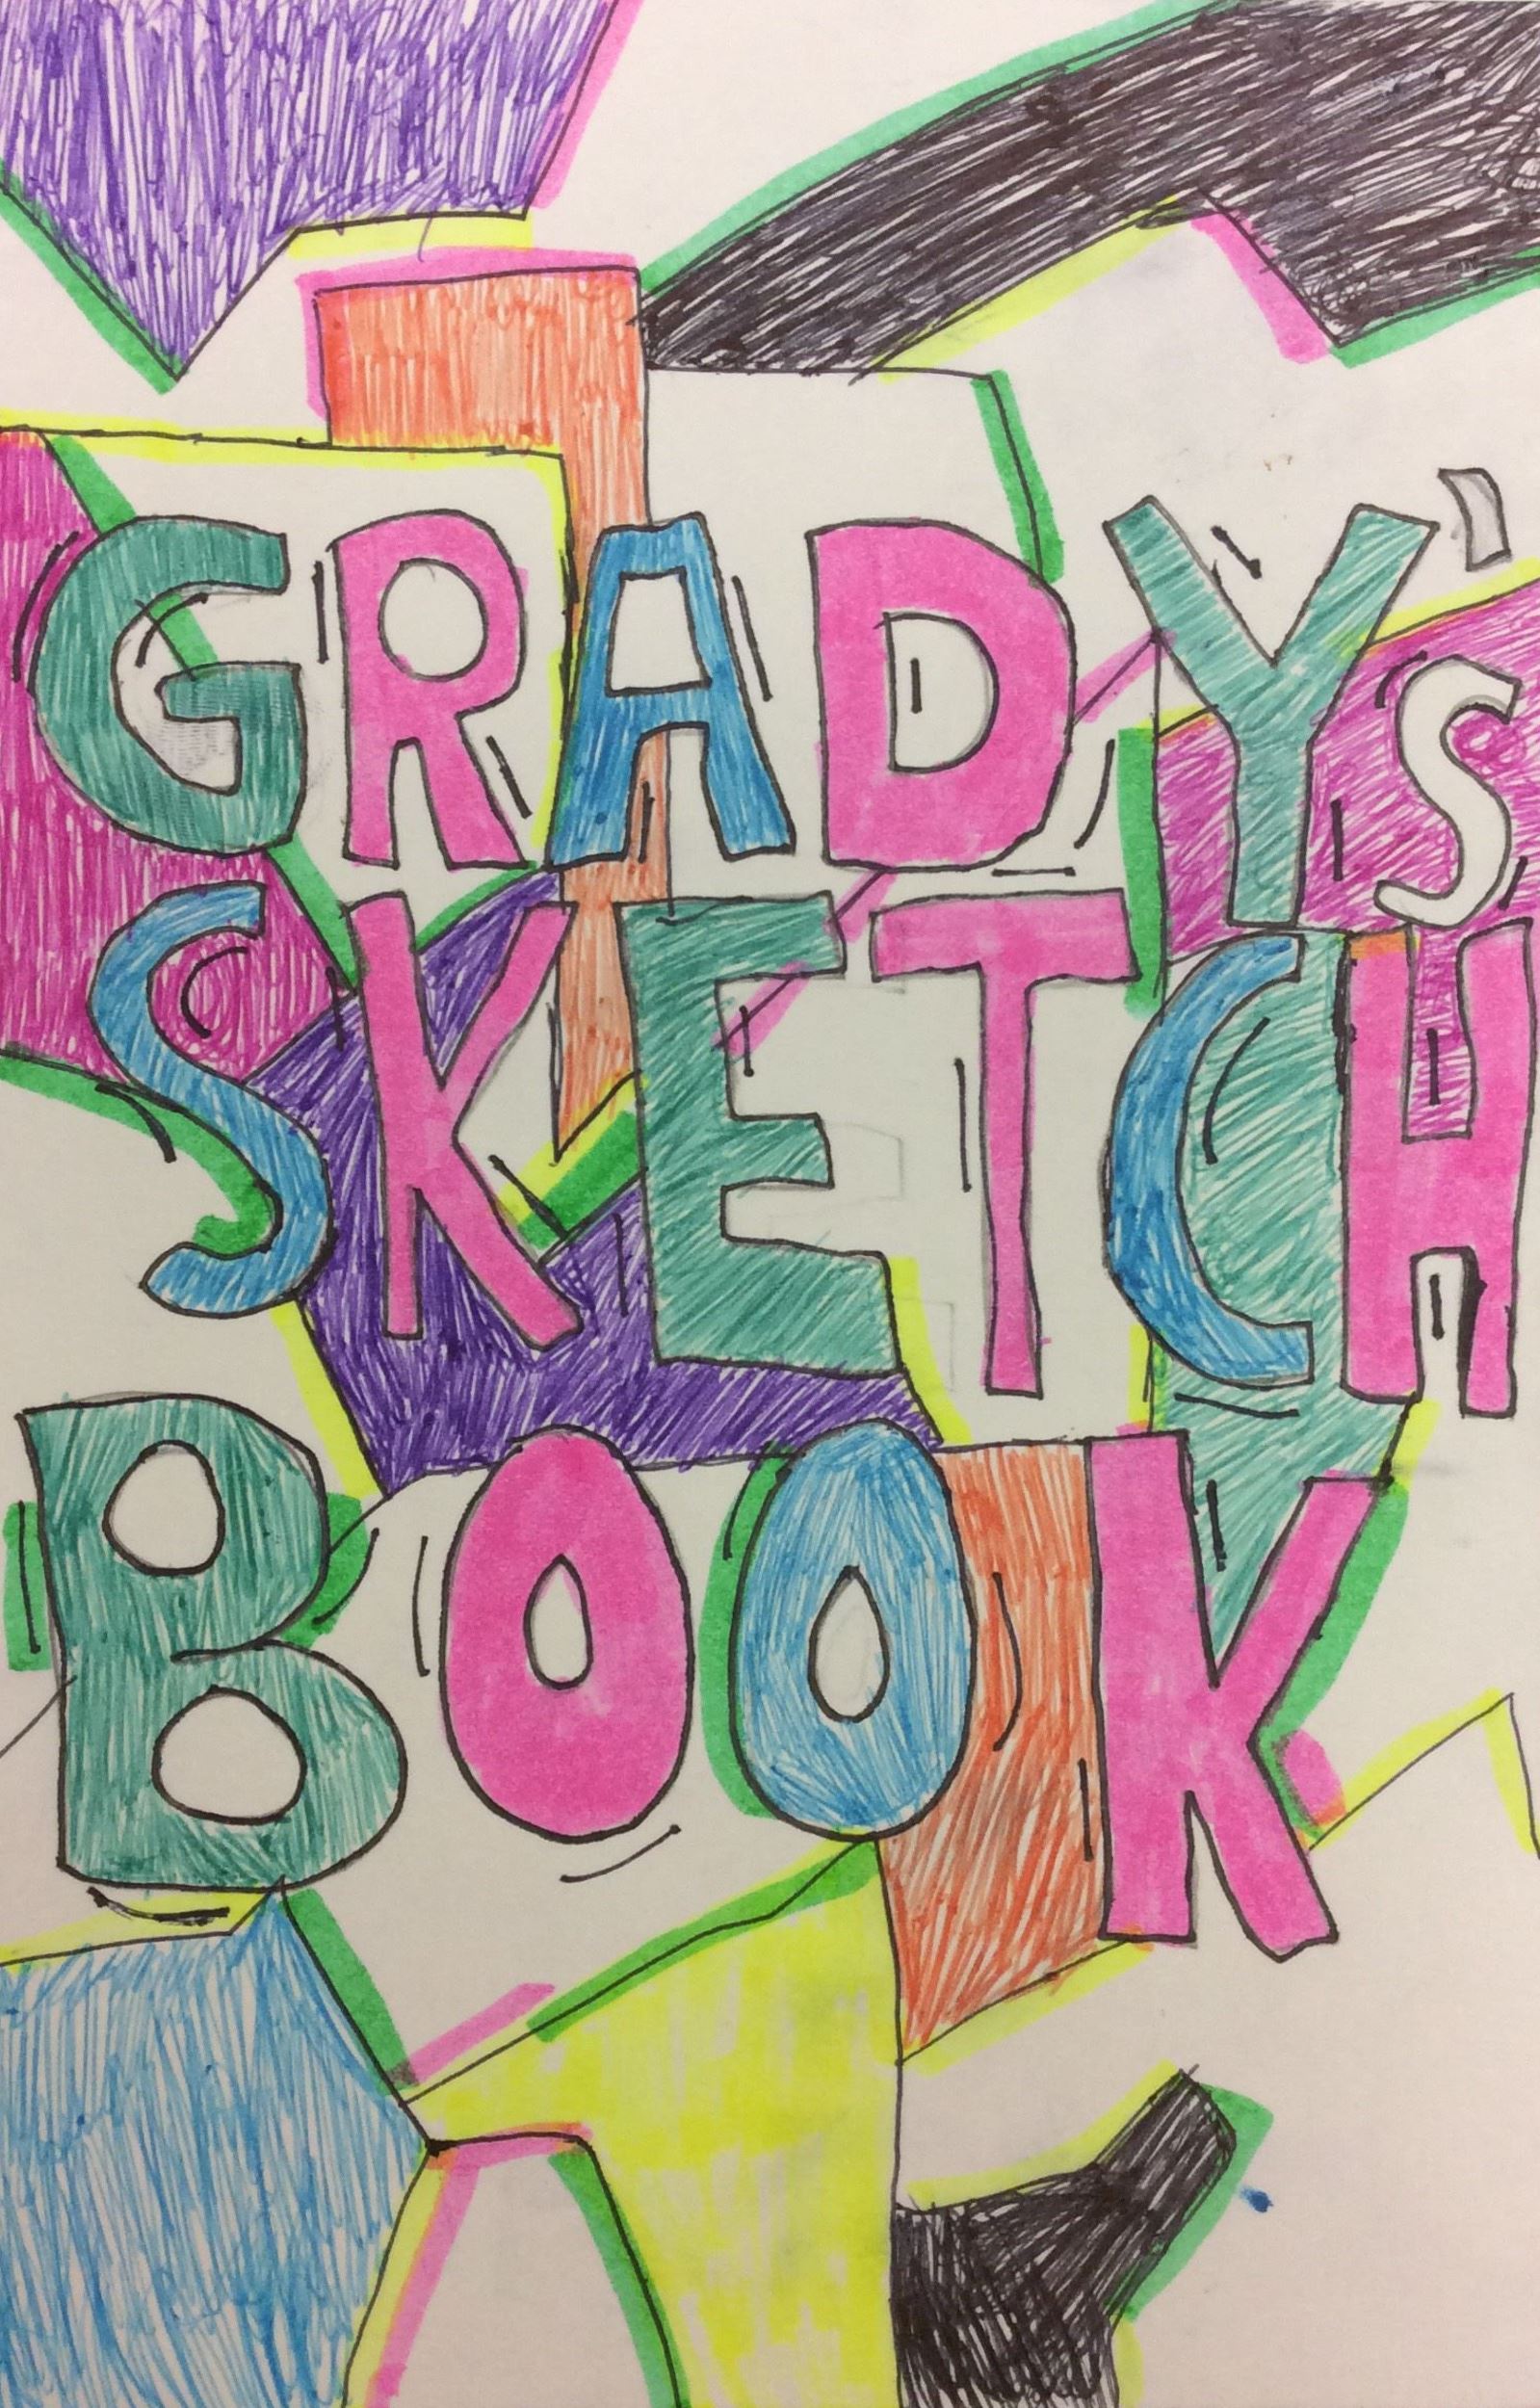 GRADY's
SKETCH
BOOK